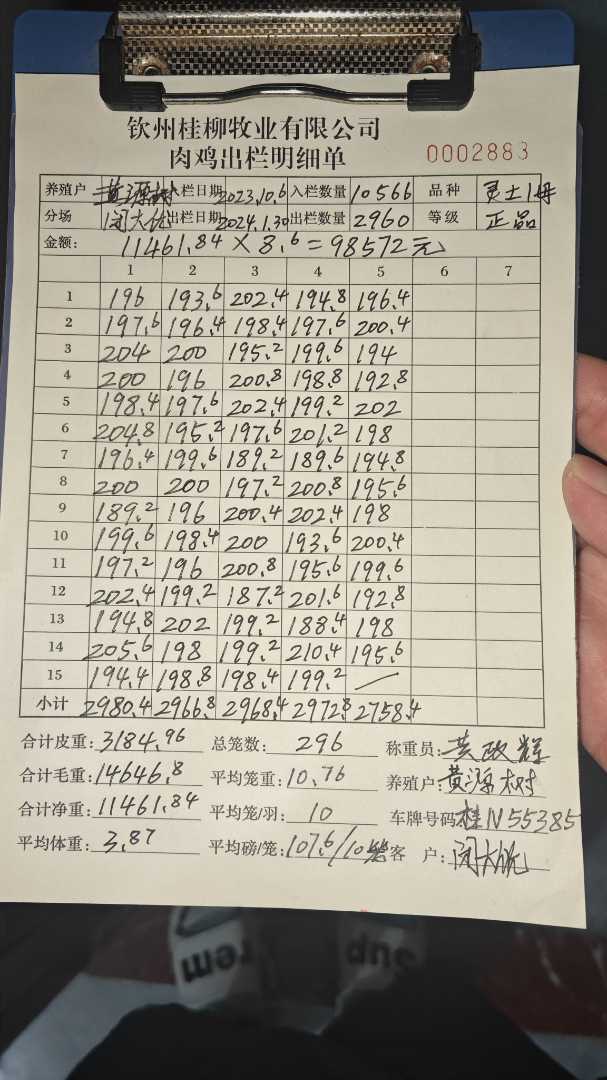 钦州桂柳牧业有限公司
肉鸡出栏明细单 0002883
养殖户 黄源树 入栏日期 2023.10.6 入栏数量 10566 品种 灵士1号
分场 闭大优 出栏日期 2024.1.30 出栏数量 2960 等级 正品
金额: 11461.84 × 8.6 = 98572元
1 2 3 4 5 6 7
1 196 193.6 202.4 194.8 196.4
2 197.6 196.4 198.4 197.6 200.4
3 204 200 195.2 199.6 194
4 200 196 200.8 198.8 192.8
5 198.4 197.6 202.4 199.2 202
6 204.8 195.2 197.6 201.2 198
7 196.4 199.6 189.2 189.6 194.8
8 200 200 197.2 200.8 195.6
9 189.2 196 200.4 202.4 198
10 199.6 198.4 200 193.6 200.4
11 197.2 196 200.8 195.6 199.6
12 202.4 199.2 187.2 201.6 192.8
13 194.8 202 199.2 188.4 198
14 205.6 198 199.2 210.4 195.6
15 194.4 198.8 198.4 199.2
小计 2980.4 2966.8 2968.4 2972.8 2758.4
合计皮重: 3184.96 总笼数: 296 称重员: 黄政辉
合计毛重: 14646.8 平均笼重: 10.76 养殖户: 黄源树
合计净重: 11461.84 平均笼/羽: 10 车牌号码: 桂N55385
平均体重: 3.87 平均磅/笼: 107.6/10 客户: 闭大优